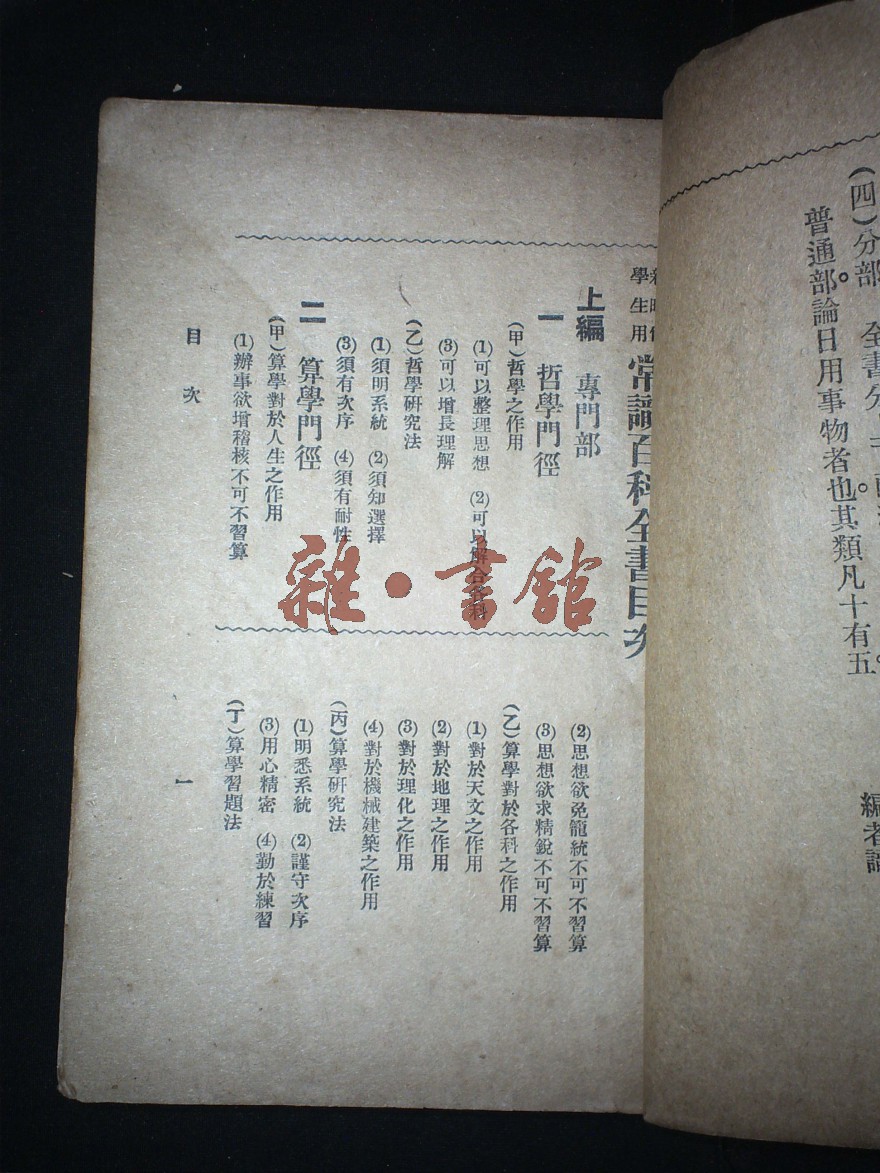 (四)分部 全書分
普通部論日用事物者也其類凡十有五。
編者識
學生用
常識百科全書目次
上編 專門部
一 哲學門徑
(甲)哲學之作用
(1)可以整理思想 (2)可以解合各科
(3)可以增長理解
(乙)哲學研究法
(1)須明系統 (2)須知選擇
(3)須有次序 (4)須有耐性
二 算學門徑
(甲)算學對於人生之作用
(1)辦事欲增稽核不可不習算
(2)思想欲免籠統不可不習算
(3)思想欲求精銳不可不習算
(乙)算學對於各科之作用
(1)對於天文之作用
(2)對於地理之作用
(3)對於理化之作用
(4)對於機械建築之作用
(丙)算學研究法
(1)明悉系統 (2)謹守次序
(3)用心精密 (4)勤於練習
(丁)算學習題法
目次
一
雜·書館